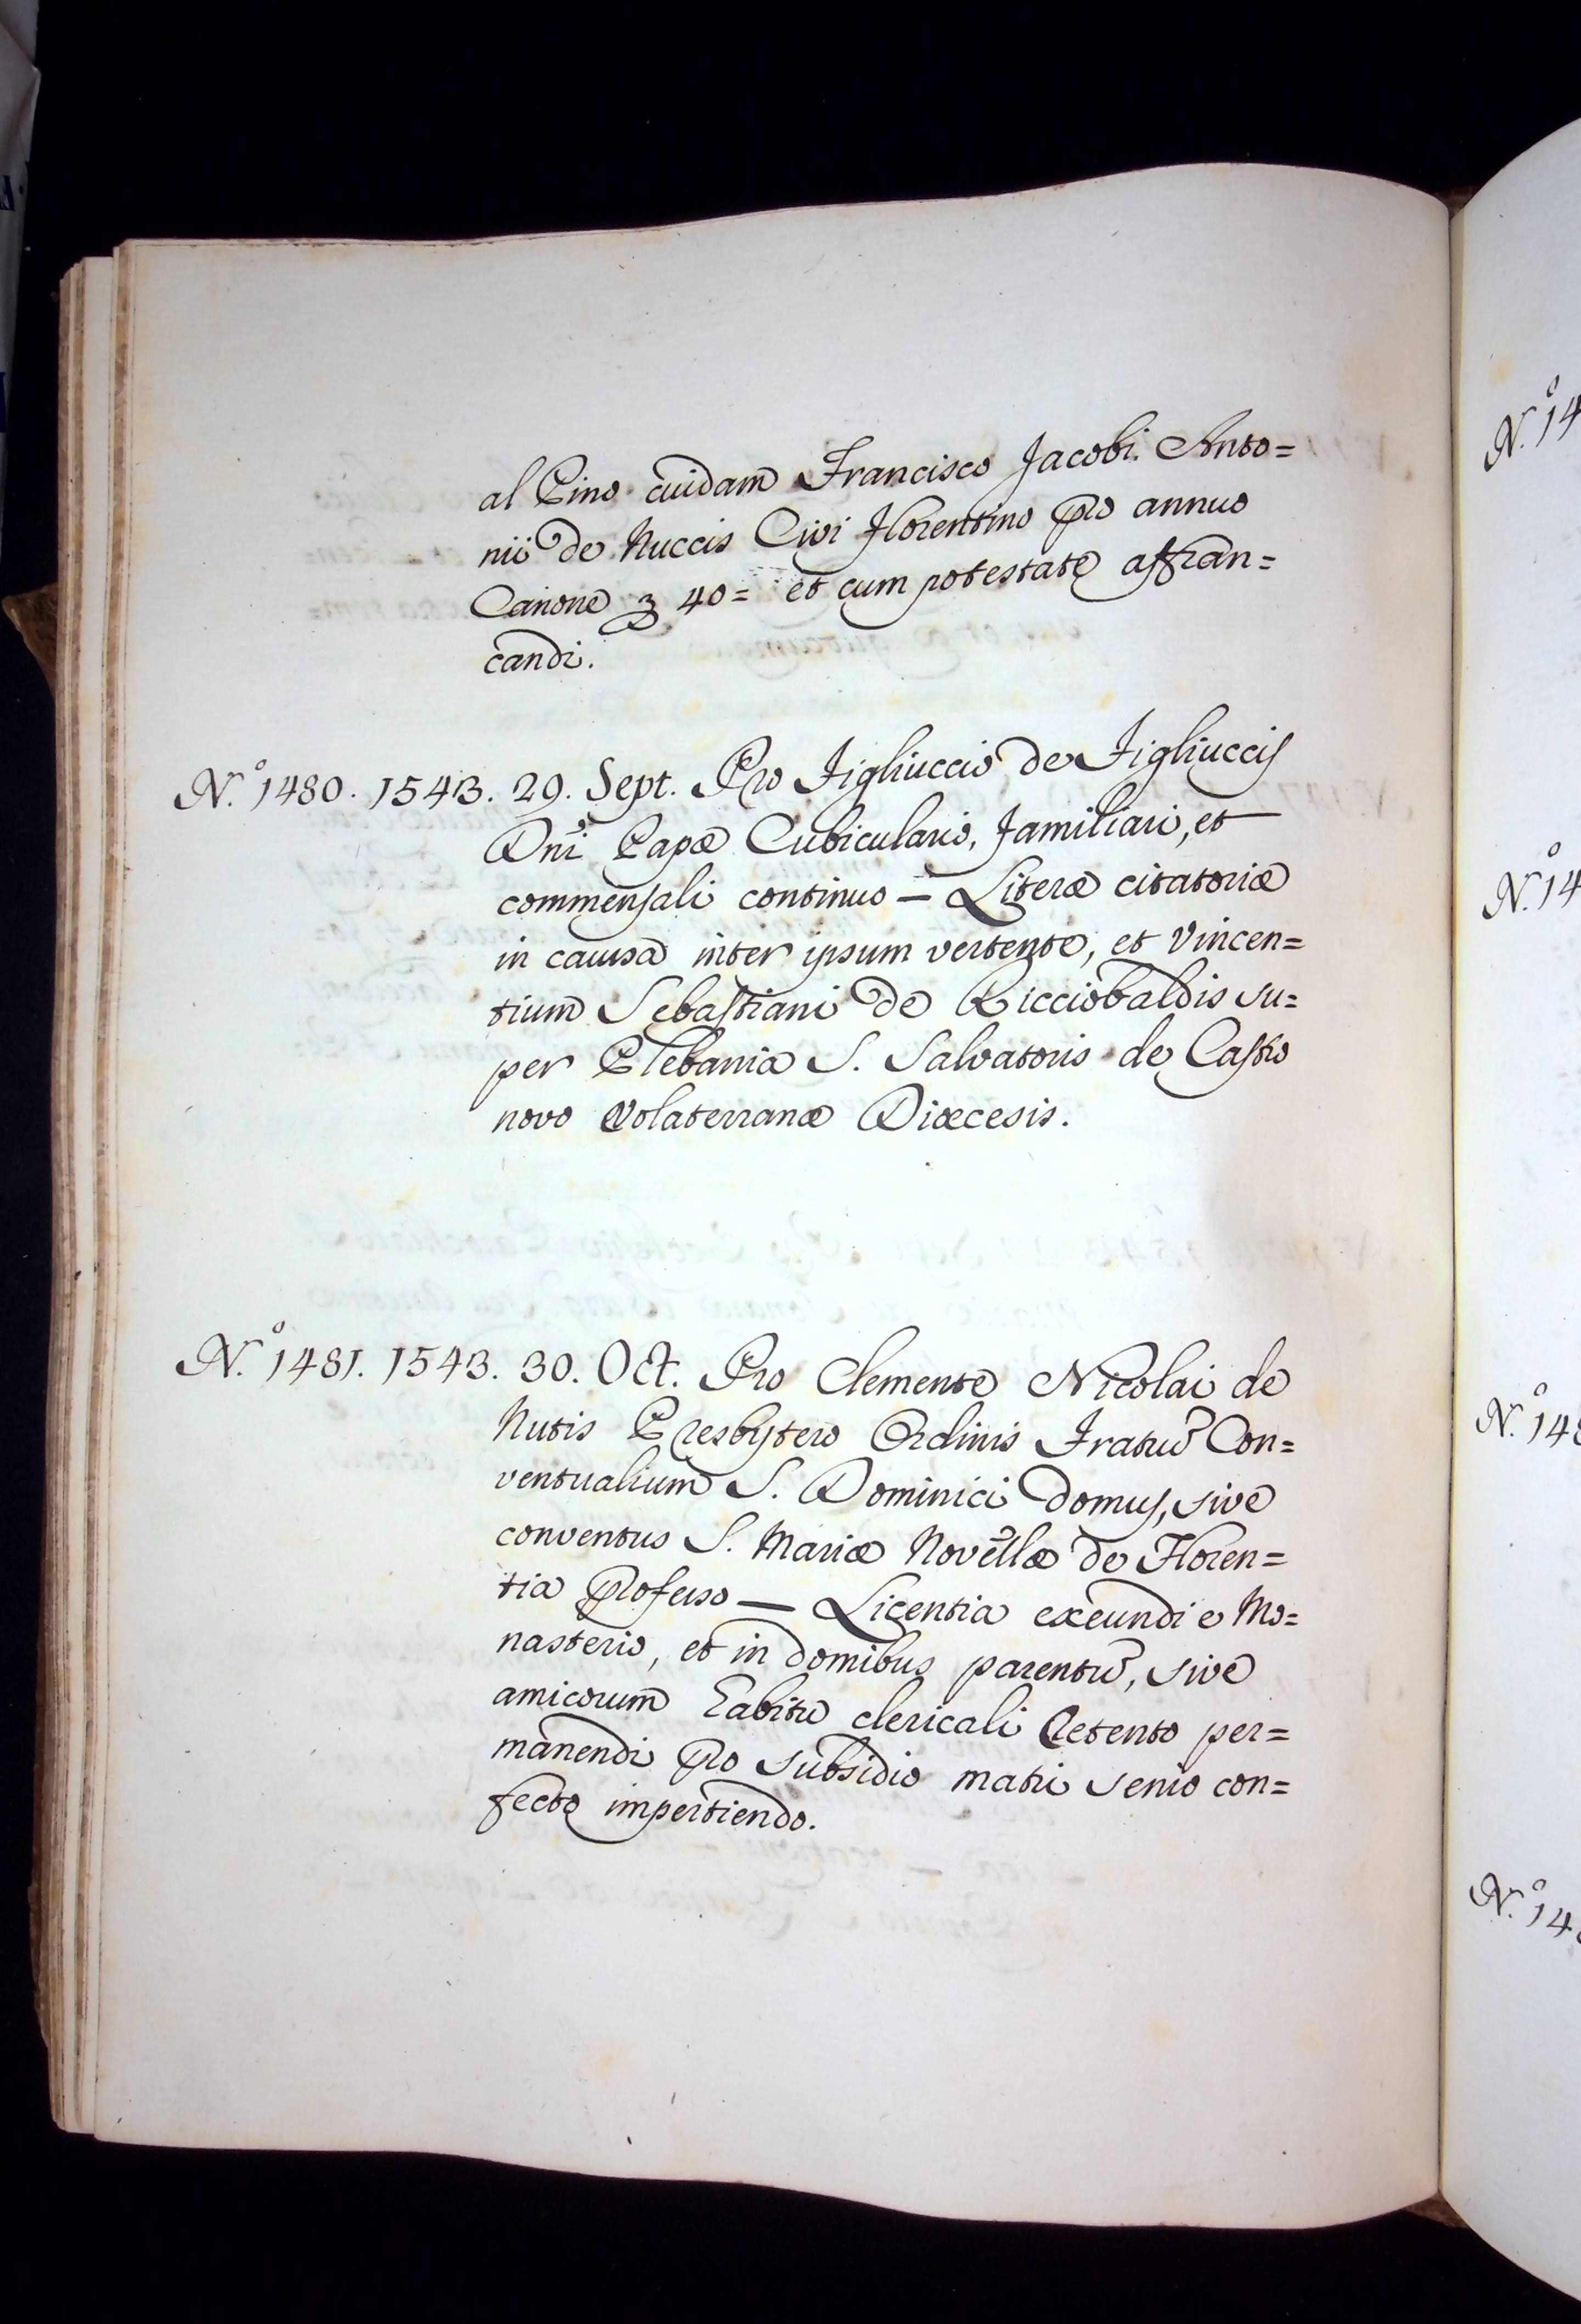 al Pino cuidam Francisco Jacobi Anto=
nii de Nuccis Civi Florentino pro annuo
Canone 40= et cum potestate affran=
candi.
N.º 1480. 1543. 29. Sept. Pro Figliuccio de Figliuccis
Dni Papæ Cubiculario, familiari, et
commensali continuo — Literæ citatoriæ
in causa inter ipsum vertente, et Vincen=
tium Sebastiani de Ricciobaldis su=
per Plebania S. Salvatoris de Castro
novo Volaterranæ Diœcesis.
N.º 1481. 1543. 30. Oct. Pro Clemente Nicolai de
Nutis Presbytero Ordinis Fratrũ Con=
ventualium S. Dominici domus, sive
conventus S. Mariæ Novellæ de Floren=
tia professo — Licentia exeundi e Mo=
nasterio, et in domibus parentũ, sive
amicorum habitu clericali retento per=
manendi pro subsidio matri senio con=
fecto impertiendo.
N.º 14
N.º 14
N.º 148
N.º 148